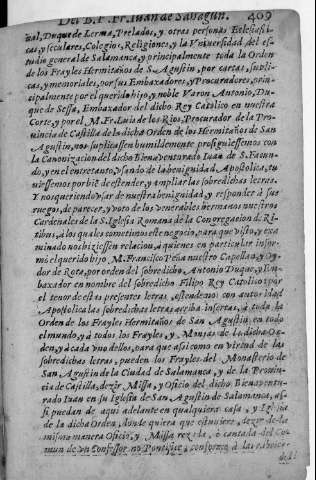 Del B. P. Fr. Iuan de Sahagun. 409
ñal, Duque de Lerma, Prelados, y otras personas Eclesiasti
cas, y seculares, Colegios, Religiones, y la Vniuersidad del es-
tudio general de Salamanca, y principalmente toda la Orden
de los Frayles Hermitaños de S. Agustin, por cartas, suplic-
cas, y memoriales, por sus Embaxadores, y Procuradores, prin-
cipalmente por el querido hijo, y noble Varon Antonio, Du-
que de Sessa, Embaxador del dicho Rey Catolico en nuestra
Corte, y por el M. Fr. Luis de los Rios, Procurador de la Pro-
uincia de Castilla de la dicha Orden de los Hermitaños de San
Agustin, nos suplicassen humildemente prosiguiessemos con
la Canonizacion del dicho Bienauenturado Iuan de S. Facun-
do, y en el entretanto, vsando de la benignidad Apostolica, tu
uiessemos por biē de estender, y ampliar las sobredichas letras.
Y nos queriendo vsar de nuestra benignidad, y responder à sus
ruegos, de parecer, y voto de los venerables hermanos nuestros
Cardenales de la S. Iglesia Romana de la Congregacion de Ri-
tibus, a los quales sometimos este negocio, para que visto, y exa
minado nos hiziessen relacion, a quienes en particular infor-
mò el querido hijo, M. Francisco Peña nuestro Capellan, y Oy-
dor de Rota, por orden del sobredicho Antonio Duque, y Em-
baxador en nombre del sobredicho Filipo Rey Catolico: por
el tenor de estas presentes letras, estendemos con autoridad
Apostolica las sobredichas letras arriba insertas, à toda la
Orden de los Frayles Hermitaños de San Agustin en todo
el mundo, y à todos los Frayles, y Monjas de la dicha Or-
den, y à cada vno dellos, para que assi como en virtud de las
sobredichas letras, pueden los Frayles del Monasterio de
San Agustin de la Ciudad de Salamanca, y de la Prouin-
cia de Castilla, dezir Missa, y Oficio del dicho Bienauentu-
rado Iuan en su Iglesia de San Agustin de Salamanca, as-
si puedan de aqui adelante en qualquiera casa, y Iglesia
de la dicha Orden, donde quiera que estuuiere, dezir de la
misma manera Oficio, y Missa rezada, ò cantada del Co-
mun de vn Confessor no Pontifice, conforme à las rubricas